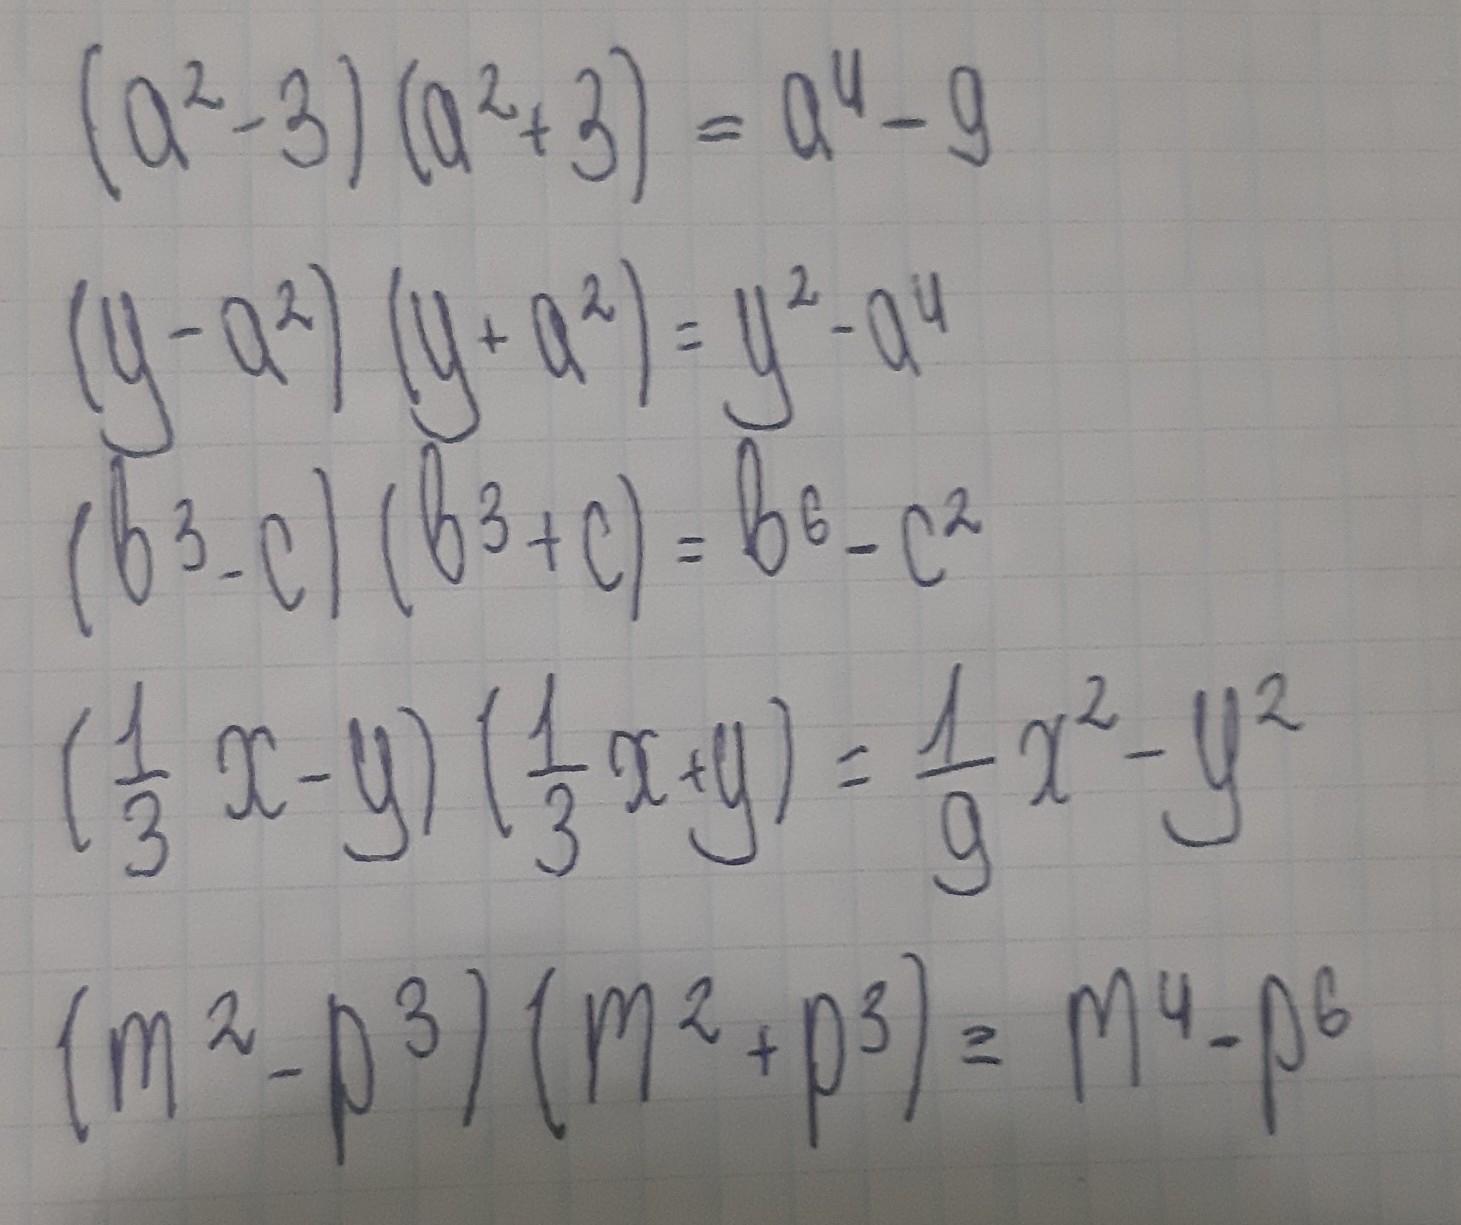 (a² - 3) (a² + 3) = a⁴ - 9
(y - a²) (y + a²) = y² - a⁴
(b³ - c) (b³ + c) = b⁶ - c²
(1/3 x - y) (1/3 x + y) = 1/9 x² - y²
(m² - p³) (m² + p³) = m⁴ - p⁶